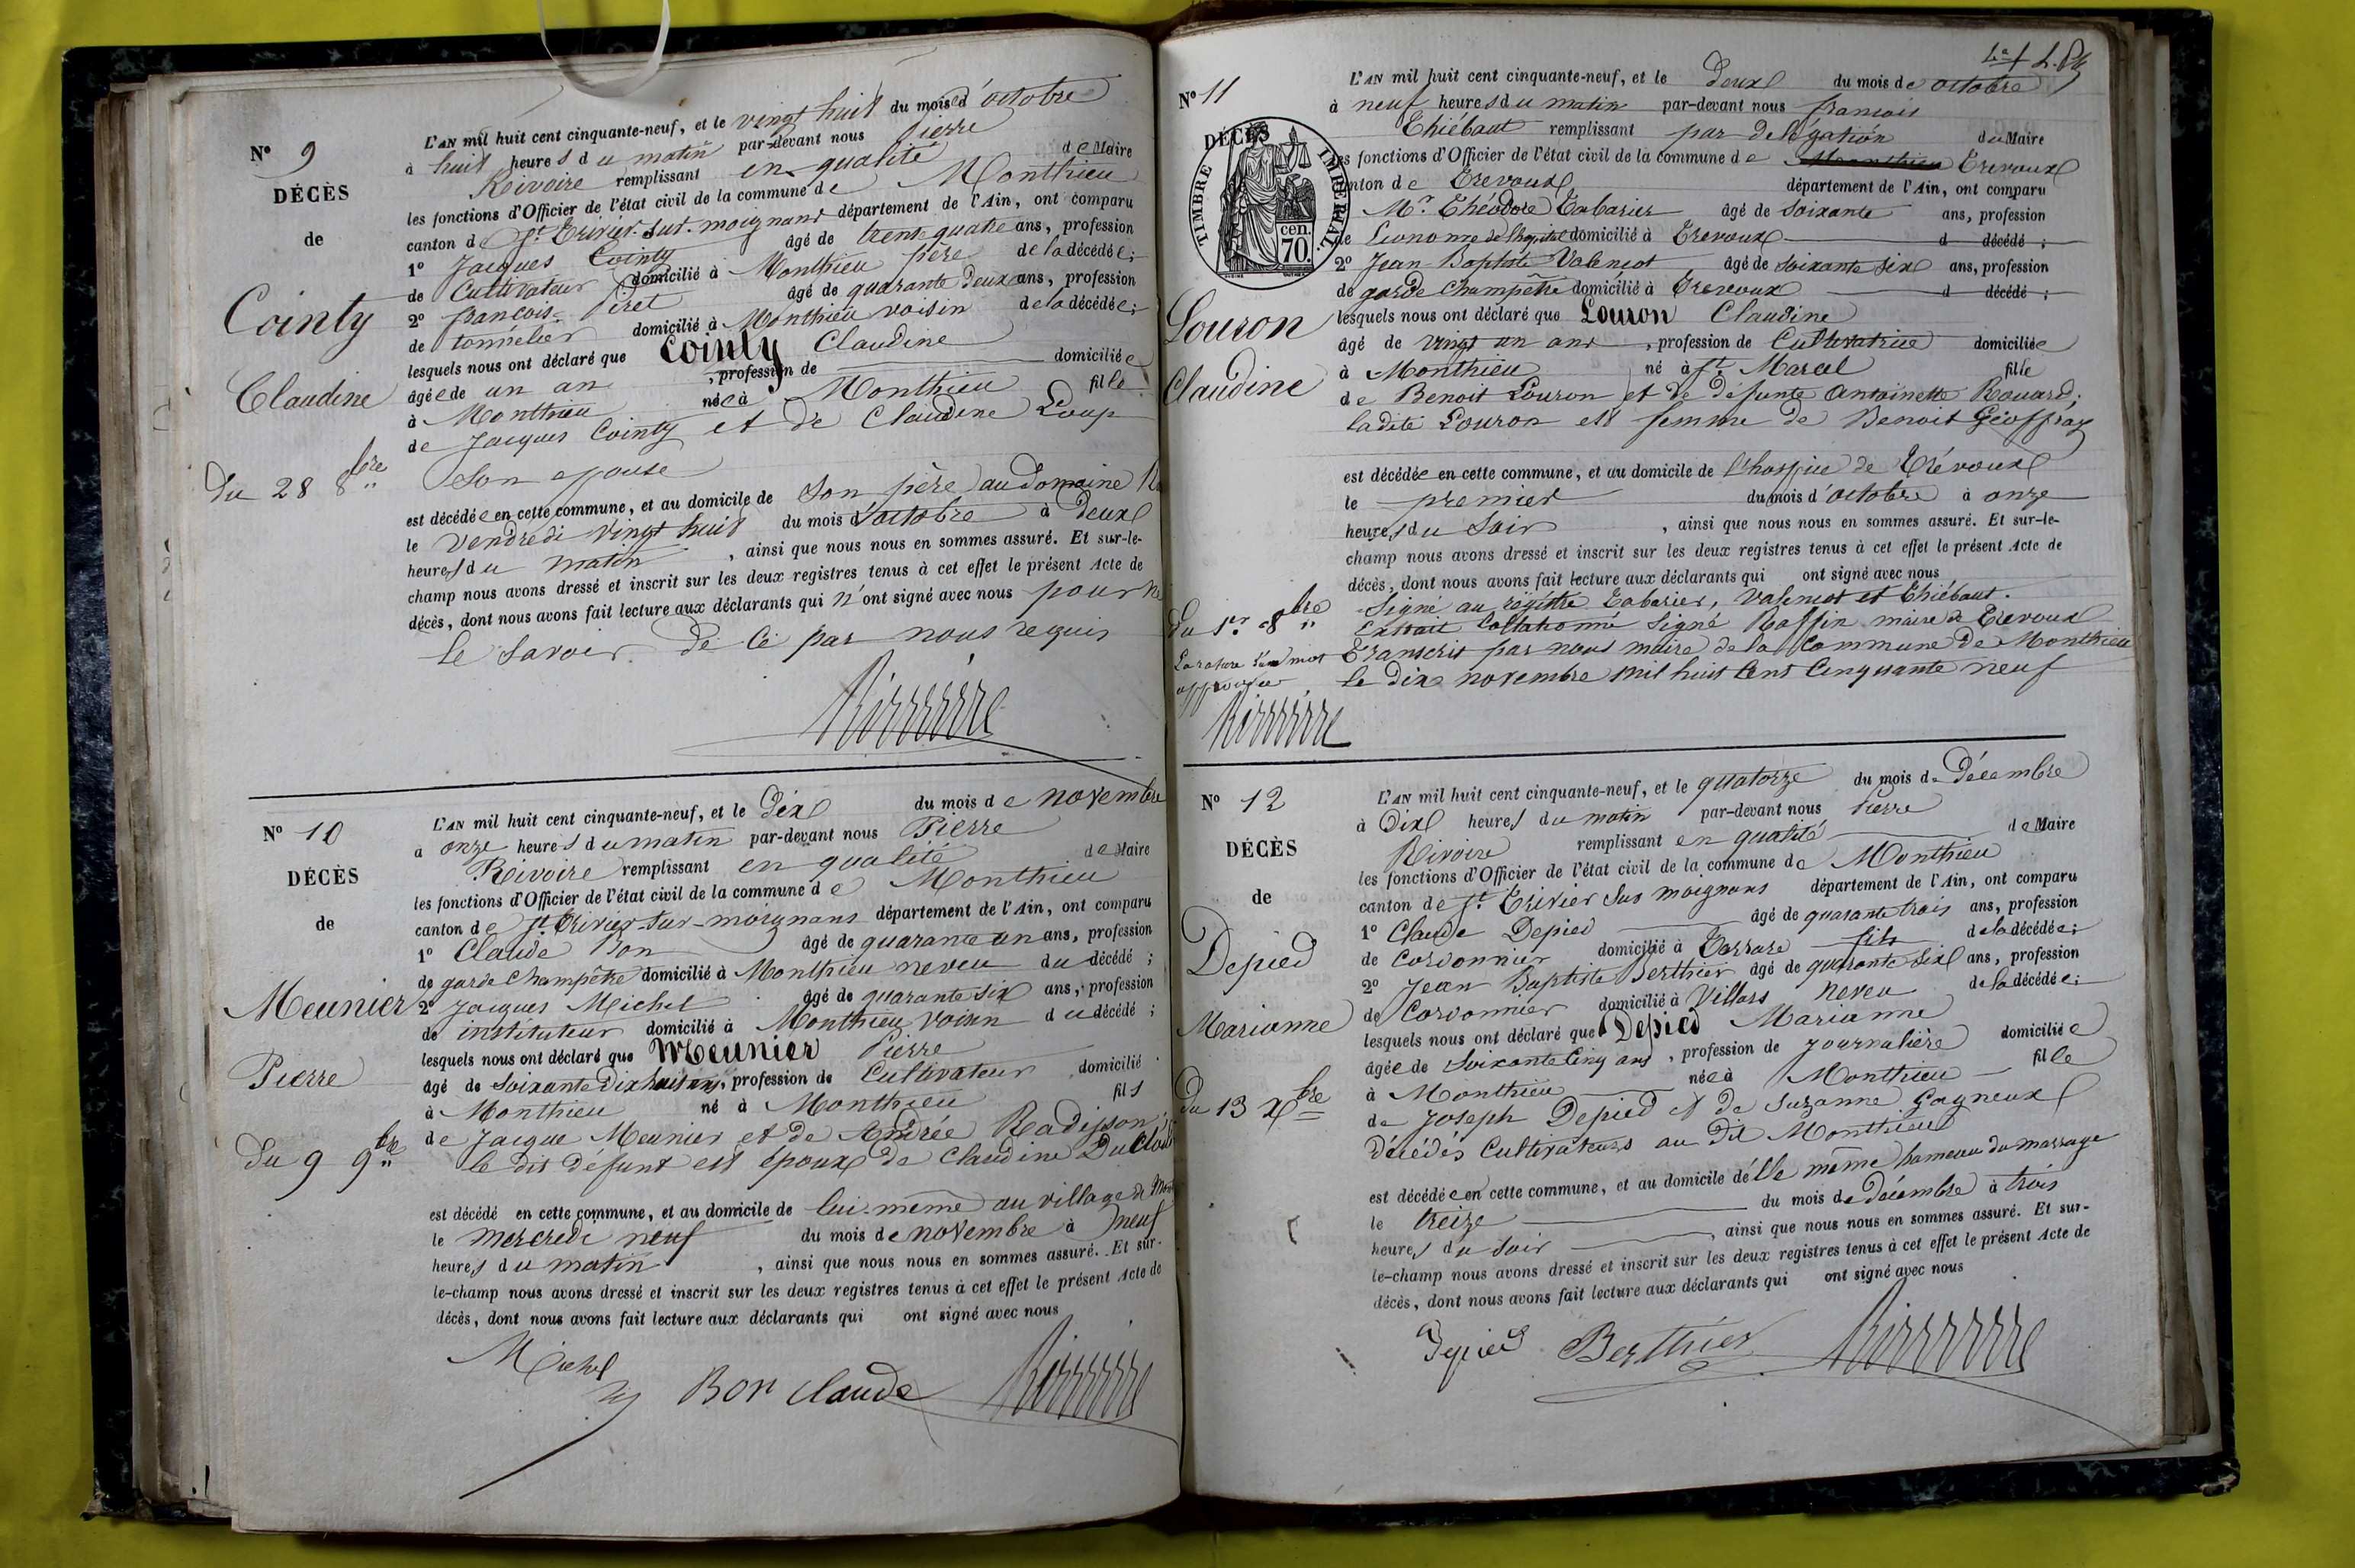 N° 9
DÉCÈS
de
Cointy
Claudine
du 28 8bre
L'AN mil huit cent cinquante-neuf, et le vingt huit du mois d'octobre
à huit heures du matin par-devant nous Pierre
Rivoire remplissant en qualité de Maire
les fonctions d'Officier de l'état civil de la commune de Monthieu
canton de St Trivier-sur-moignans département de l'Ain, ont comparu
1° Jacques Cointy âgé de trente quatre ans, profession
de Cultivateur domicilié à Monthieu père de la décédée ;
2° françois Piret âgé de quarante deux ans, profession
de tonnelier domicilié à Monthieu voisin de la décédée ;
lesquels nous ont déclaré que Cointy Claudine
âgée de un an , profession de domiciliée
à Monthieu née à Monthieu fille
de Jacques Cointy et de Claudine Loup
Son epouse
est décédée en cette commune, et au domicile de son père au Domaine
le vendredi vingt huit du mois d'octobre à deux
heures du matin , ainsi que nous nous en sommes assuré. Et sur-le-
champ nous avons dressé et inscrit sur les deux registres tenus à cet effet le présent Acte de
décès, dont nous avons fait lecture aux déclarants qui n'ont signé avec nous pour ne
le savoir de ce par nous requis
N° 10
DÉCÈS
de
Meunier
Pierre
du 9 9bre
L'AN mil huit cent cinquante-neuf, et le dix du mois de novembre
à onze heures du matin par-devant nous Pierre
Rivoire remplissant en qualité de Maire
les fonctions d'Officier de l'état civil de la commune de Monthieu
canton de St Trivier-sur-moignans département de l'Ain, ont comparu
1° Claude Bon âgé de quarante un ans, profession
de garde champêtre domicilié à Monthieu neveu du décédé ;
2° Jacques Michel âgé de quarante six ans, profession
de instituteur domicilié à Monthieu voisin du décédé ;
lesquels nous ont déclaré que Meunier Pierre
âgé de soixante Dix huit ans, profession de Cultivateur domicilié
à Monthieu né à Monthieu fils
de Jacque Meunier et de Andrée Radisson
le dit défunt est époux de Claudine Duclos
est décédé en cette commune, et au domicile de lui-même au village de
le mercredi neuf du mois de novembre à neuf
heures du matin , ainsi que nous nous en sommes assuré. Et sur-
le-champ nous avons dressé et inscrit sur les deux registres tenus à cet effet le présent Acte de
décès, dont nous avons fait lecture aux déclarants qui ont signé avec nous
Michel
Bon Claude
N° 11
DÉCÈS
TIMBRE IMPÉRIAL
70 cen.
Louron
Claudine
du 1er 8bre
La rature d'un mot
approuvée
L'AN mil huit cent cinquante-neuf, et le deux du mois de octobre
à neuf heures du matin par-devant nous françois
Thiébaut remplissant par délégation du Maire
les fonctions d'Officier de l'état civil de la commune de Monthieu Trevoux
canton de Trevoux département de l'Ain, ont comparu
Mr Théodore Tabarier âgé de soixante ans, profession
de Econome de l'hopital domicilié à Trevoux d décédé ;
2° Jean Baptiste Valençot âgé de soixante six ans, profession
de garde champêtre domicilié à Trevoux d décédé ;
lesquels nous ont déclaré que Louron Claudine
âgé de vingt un ans , profession de Cultivatrice domiciliée
à Monthieu né à St Marcel fille
de Benoit Louron et de défunte Antoinette Rouard ;
ladite Louron est femme de Benoit Géoffray
est décédée en cette commune, et au domicile de l'hospice de Trévoux
le premier du mois d'octobre à onze
heures du soir , ainsi que nous nous en sommes assuré. Et sur-le-
champ nous avons dressé et inscrit sur les deux registres tenus à cet effet le présent Acte de
décès, dont nous avons fait lecture aux déclarants qui ont signé avec nous
Signé au régistre Tabarier, Valençot et Thiébaut.
Extrait Collationné Signé Raffin maire de Trevoux
Transcrit par nous maire de la Commune de Monthieu
le dix novembre mil huit Cent Cinquante neuf
N° 12
DÉCÈS
de
Depied
Marianne
du 13 Xbre
L'AN mil huit cent cinquante-neuf, et le quatorze du mois de Décembre
à Dix heures du matin par-devant nous Pierre
Rivoire remplissant en qualité de Maire
les fonctions d'Officier de l'état civil de la commune de Monthieu
canton de St Trivier sur moignans département de l'Ain, ont comparu
1° Claude Depied âgé de quarante trois ans, profession
de Cordonnier domicilié à Tarrare fils de la décédée ;
2° Jean Baptiste Berthier âgé de quarante six ans, profession
de Cordonnier domicilié à Villars neveu de la décédée ;
lesquels nous ont déclaré que Depied Marianne
âgée de soixante Cinq ans , profession de Journalière domiciliée
à Monthieu née à Monthieu fille
de Joseph Depied et de Suzanne Gagneux
Décédés Cultivateurs au dit Monthieu
est décédée en cette commune, et au domicile d'elle même hameau du
le treize du mois de décembre à trois
heures du soir , ainsi que nous nous en sommes assuré. Et sur-
le-champ nous avons dressé et inscrit sur les deux registres tenus à cet effet le présent Acte de
décès, dont nous avons fait lecture aux déclarants qui ont signé avec nous
Depied Berthier